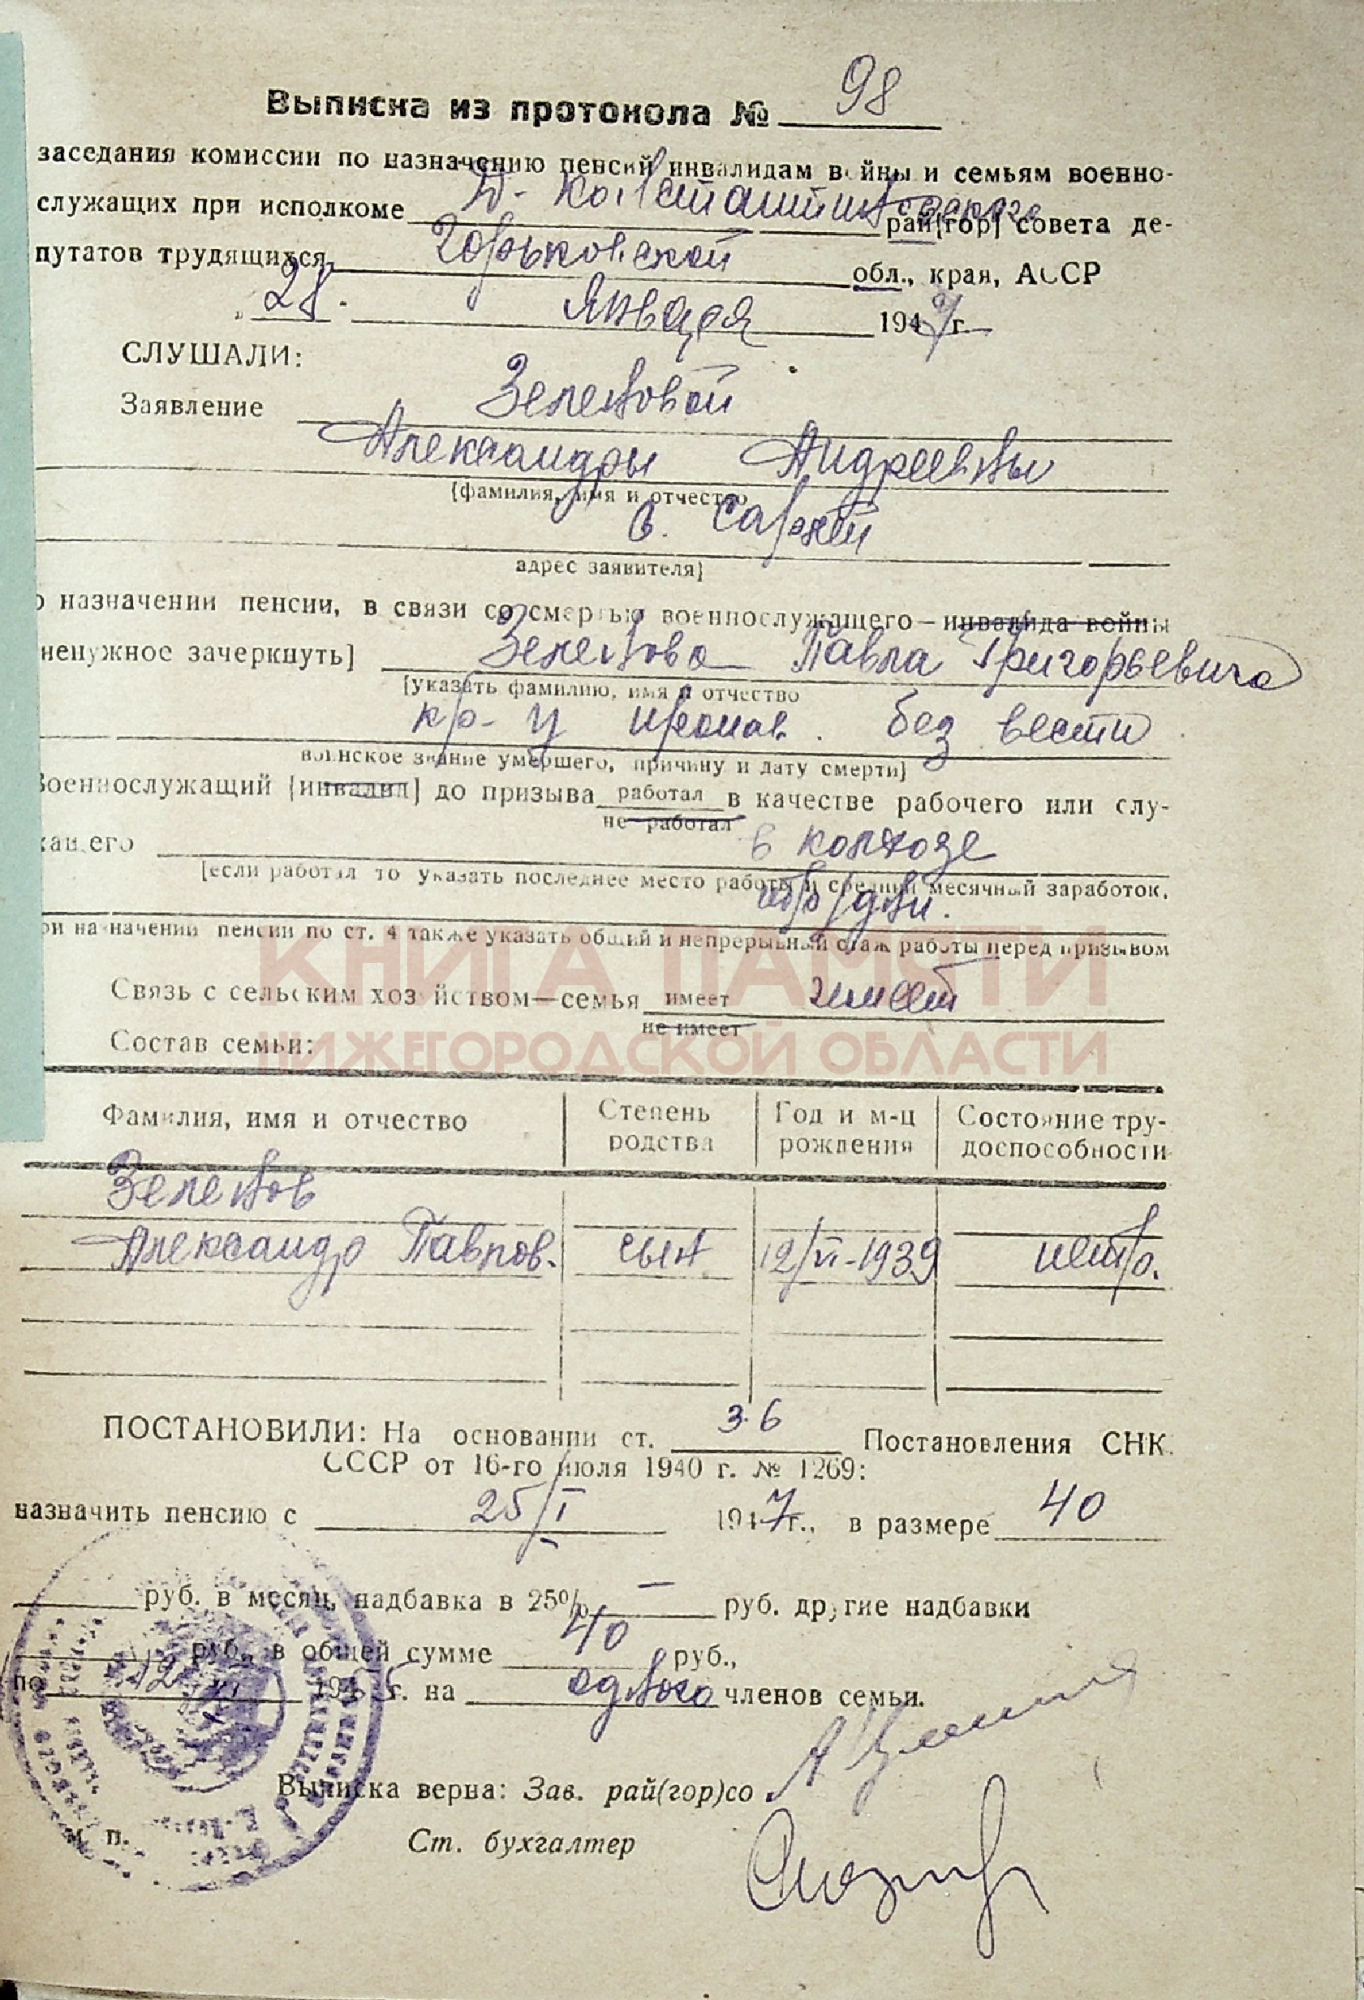 Выписка из протокола № 98
заседания комиссии по назначению пенсий инвалидам войны и семьям военно-
служащих при исполкоме Д-Константиновского рай[гор] совета де-
путатов трудящихся Горьковской обл., края, АССР
„28. января 1947 г.
СЛУШАЛИ:
Заявление Зеленовой
Александры Андреевны
[фамилия, имя и отчество
с.
адрес заявителя]
о назначении пенсии, в связи со смертью военнослужащего—инвалида войны
ненужное зачеркнуть] Зеленова Павла Григорьевича
[указать фамилию, имя и отчество
кр-ц пропав. без вести
воинское звание умершего, причину и дату смерти]
Военнослужащий [инвалид] до призыва работал в качестве рабочего или слу-
не работал
жащего в колхозе
[если работал то указать последнее место работы и средний месячный заработок,
при назначении пенсии по ст. 4 также указать общий и непрерывный стаж работы перед призывом
КНИГА ПАМЯТИ
Связь с сельским хозяйством—семья имеет имеет
не имеет
НИЖЕГОРОДСКОЙ ОБЛАСТИ
Состав семьи:
Фамилия, имя и отчество Степень родства Год и м-ц рождения Состояние тру-доспособности
Зеленов
Александр Павлов. сын 12/VI-1939 нетр.
ПОСТАНОВИЛИ: На основании ст. 3.6 Постановления СНК
СССР от 16-го июля 1940 г. № 1269:
назначить пенсию с 25/I 1947 г., в размере 40
руб. в месяц, надбавка в 25% — руб. другие надбавки
руб., в общей сумме 40 руб.,
по 12 VI 1955 г. на одного членов семьи.
Выписка верна: Зав. рай(гор)со
м п.
Ст. бухгалтер